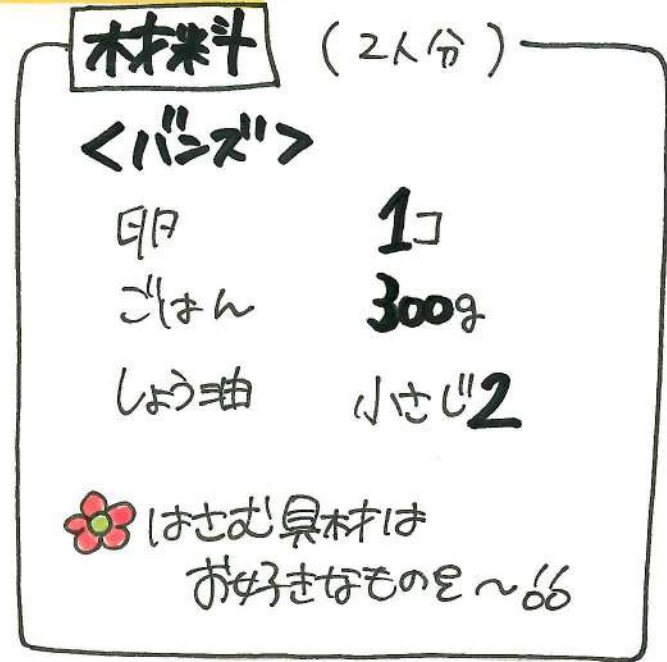 材料 (2人分)
<バンズ>
卵 1コ
ごはん 300g
しょう油 小さじ2
はさむ具材は
お好きなものを〜